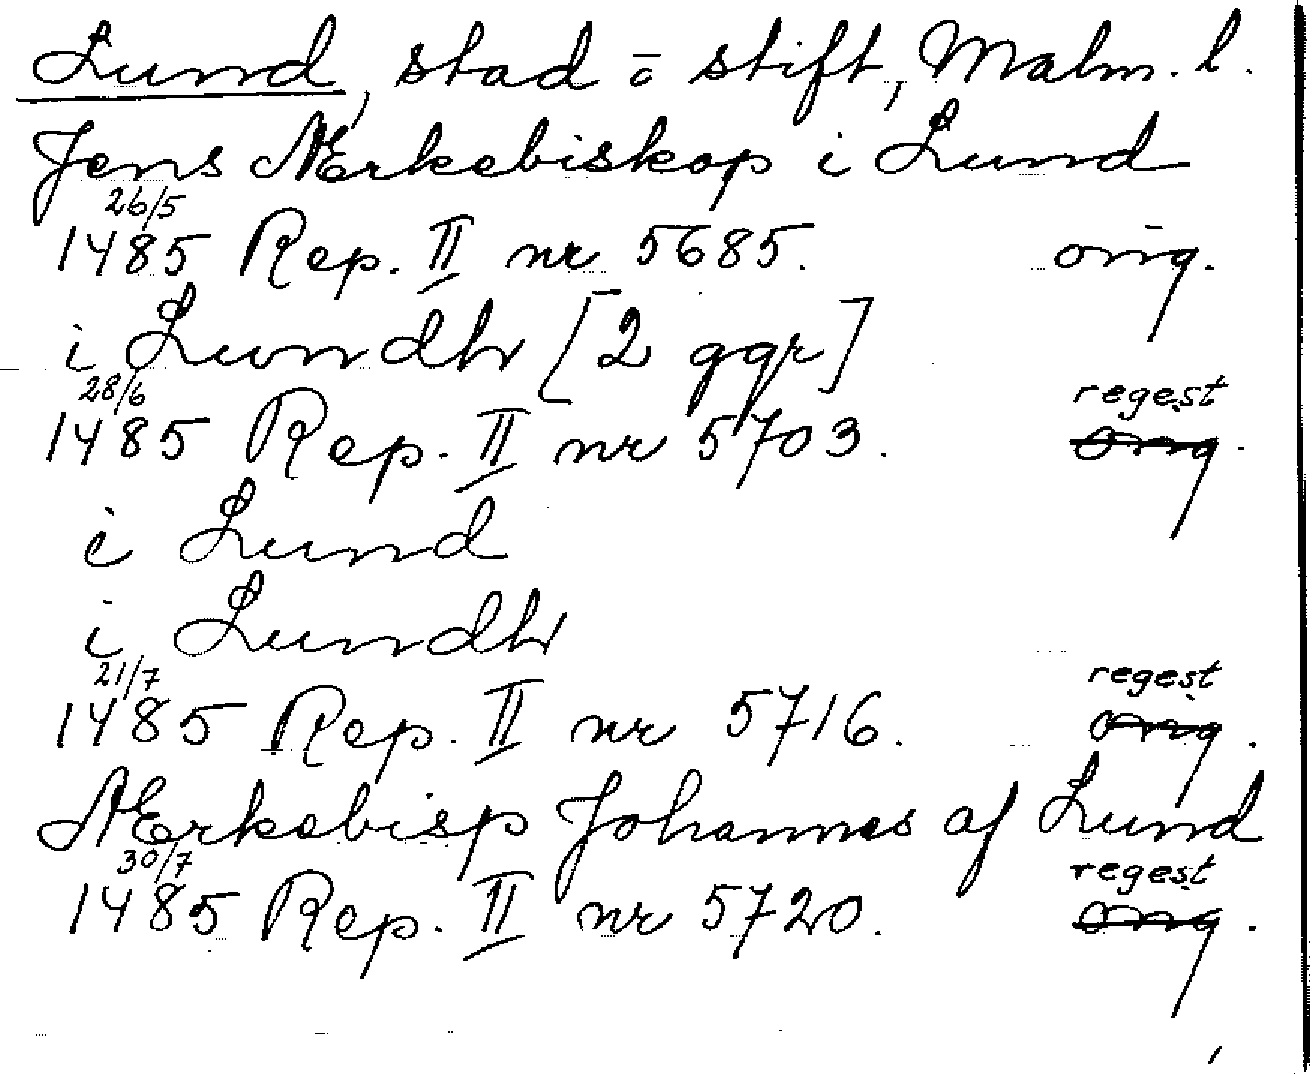 Lund, stad o stift, Malm. l.
Jens Ærkebiskop i Lund
26/5
1485 Rep. II nr 5685. orig.
i Lvndh [2 ggr]
28/6 regest
1485 Rep. II nr 5703. orig.
i Lund
i Lundh
21/7 regest
1485 Rep. II nr 5716. orig.
Ærkebisp Johannes af Lund
30/7 regest
1485 Rep. II nr 5720. orig.